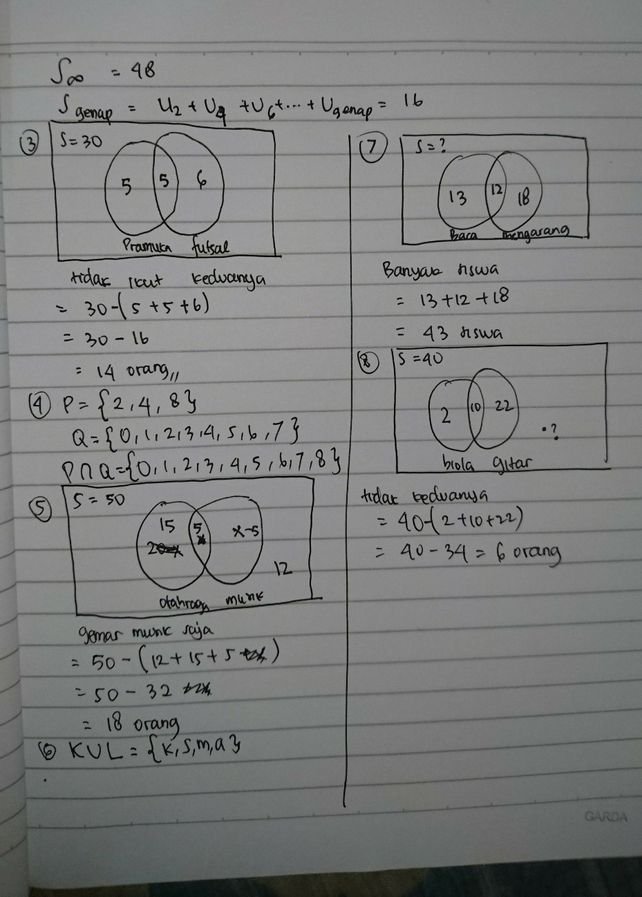 S∞ = 48
S genap = U2 + U4 + U6 + ... + U genap = 16
③ S = 30
5 5 6
Pramuka futsal
tidak ikut keduanya
= 30 - (5 + 5 + 6)
= 30 - 16
= 14 orang,,
④ P = {2, 4, 8}
Q = {0, 1, 2, 3, 4, 5, 6, 7}
P ∩ Q = {0, 1, 2, 3, 4, 5, 6, 7, 8}
⑤ S = 50
15 5 x-5
20-x x
12
olahraga musik
gemar musik saja
= 50 - (12 + 15 + 5)
= 50 - 32
= 18 orang
⑥ K U L = {K, S, m, a}
⑦ S = ?
13 12 18
Baca mengarang
Banyak siswa
= 13 + 12 + 18
= 43 siswa
⑧ S = 40
2 10 22
•?
biola gitar
tidak keduanya
= 40 - (2 + 10 + 22)
= 40 - 34 = 6 orang
GARDA